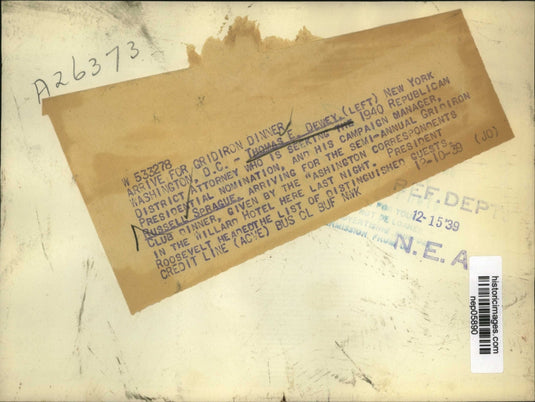 A26373
W 533278
ARRIVE FOR GRIDIRON DINNER
WASHINGTON, D.C. -- THOMAS E. DEWEY, (LEFT) NEW YORK
DISTRICT ATTORNEY WHO IS SEEKING THE 1940 REPUBLICAN
PRESIDENTIAL NOMINATION, AND HIS CAMPAIGN MANAGER,
RUSSELL SPRAGUE, ARRIVING FOR THE SEMI-ANNUAL GRIDIRON
CLUB DINNER, GIVEN BY THE WASHINGTON CORRESPONDENTS
IN THE WILLARD HOTEL HERE LAST NIGHT. PRESIDENT
ROOSEVELT HEADED THE LIST OF DISTINGUISHED GUESTS.
CREDIT LINE (ACME) BUS CL BUF NWK 12-10-39 (JO)
REF. DEPT
12-15 '39
N.E.A
historicimages.com
nep05890